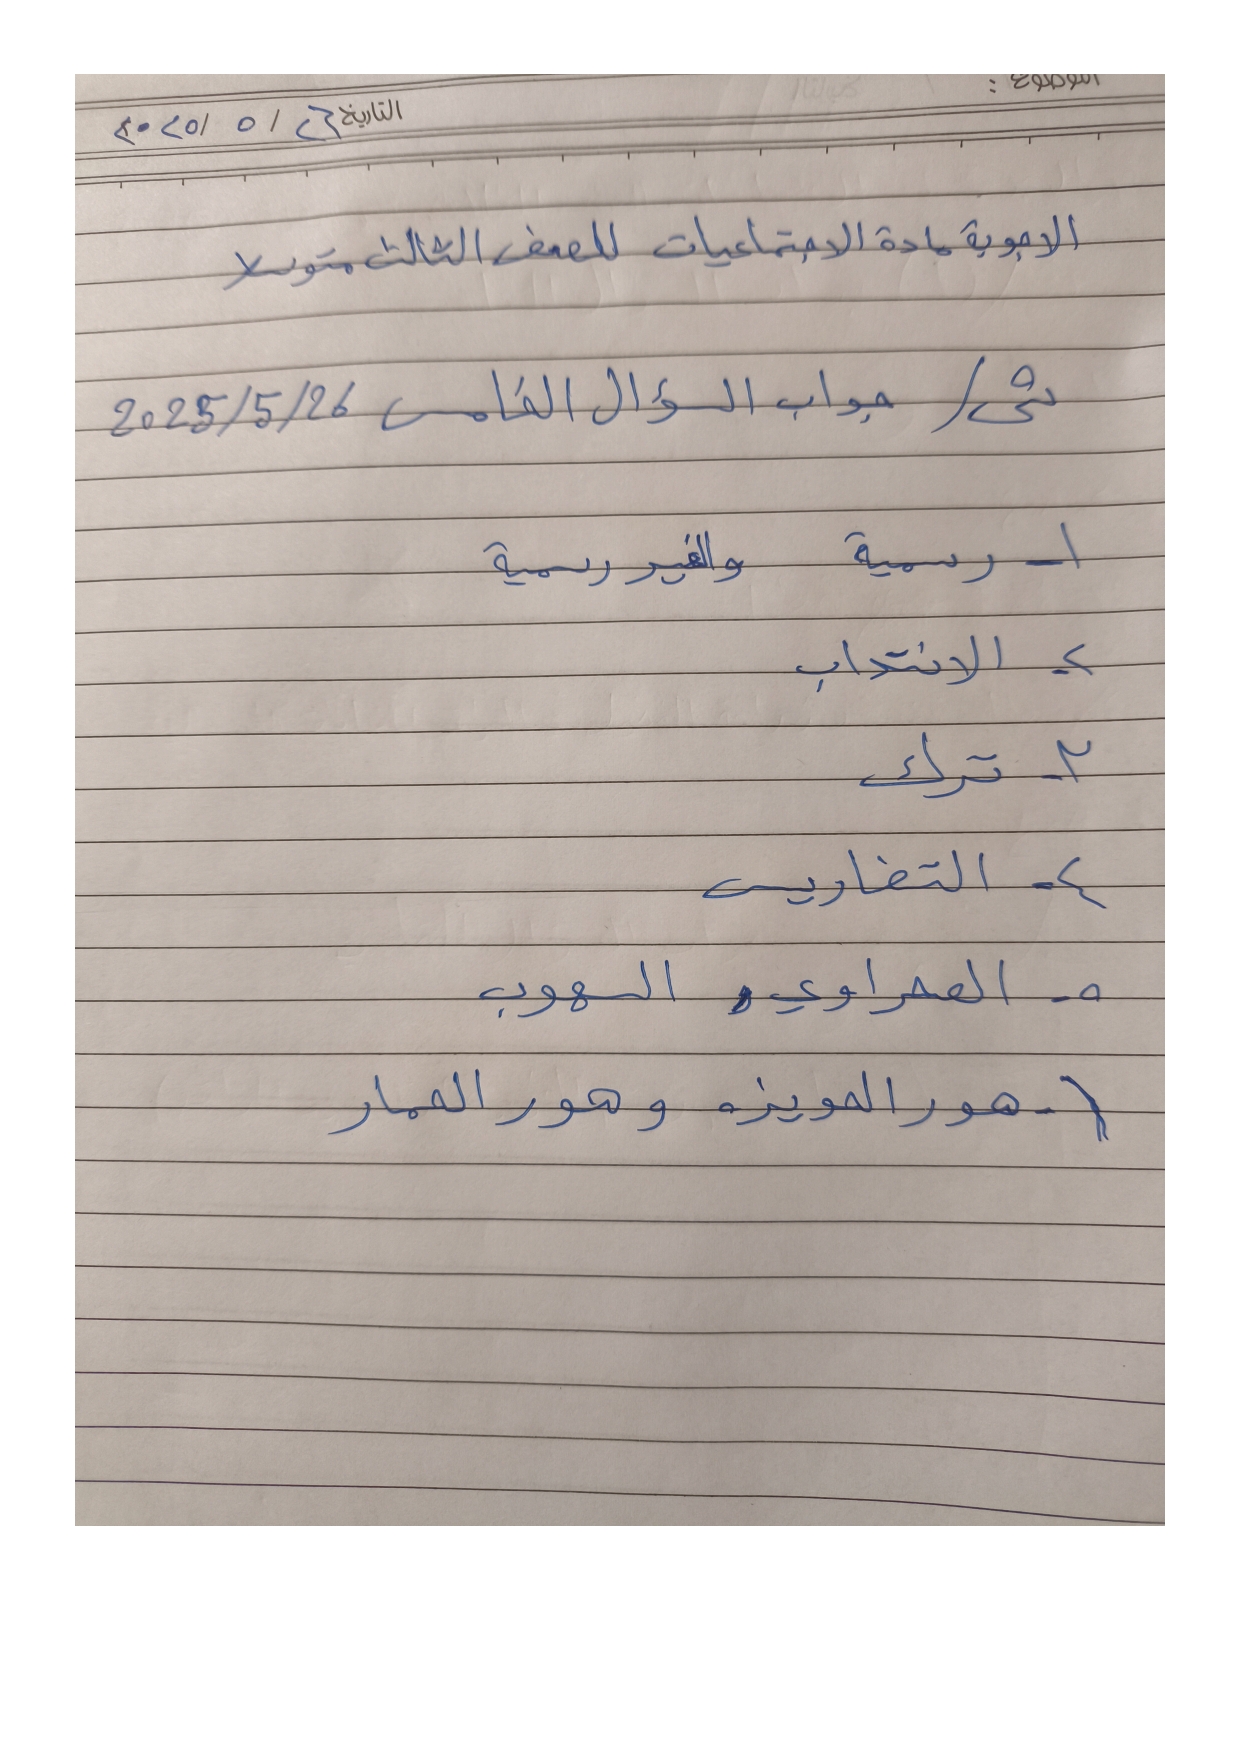 الموضوع :
التاريخ ٢٦ / ٥ / ٢٠٢٥
الاجوبة مادة الاجتماعيات للصف الثالث متوسط
جواب السؤال الخامس 2025/5/26
١- رسمية والغير رسمية
٢- الانتداب
٣- ترك
٤- التضاريس
٥- الصحراوي، السهوب
٦- هور الحويزه وهور الحمار